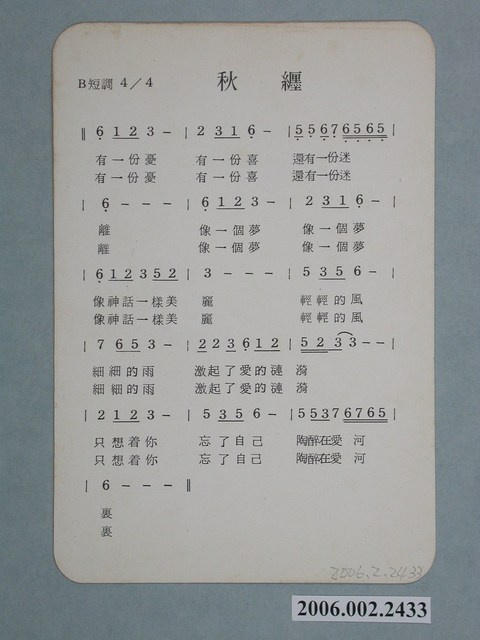 B短調 4／4 秋纏
‖ 6 1 2 3 － | 2 3 1 6 － | 5 5 6 7 6 5 6 5 |
有一份憂 有一份喜 還有一份迷
有一份憂 有一份喜 還有一份迷
| 6 － － － | 6 1 2 3 － | 2 3 1 6 － |
離 像一個夢 像一個夢
離 像一個夢 像一個夢
| 6 1 2 3 5 2 | 3 － － － | 5 3 5 6 － |
像神話一樣美 麗 輕輕的風
像神話一樣美 麗 輕輕的風
| 7 6 5 3 － | 2 2 3 6 1 2 | 5 2 3 3 － － |
細細的雨 激起了愛的漣 漪
細細的雨 激起了愛的漣 漪
| 2 1 2 3 － | 5 3 5 6 － | 5 5 3 7 6 7 6 5 |
只想着你 忘了自己 陶醉在愛 河
只想着你 忘了自己 陶醉在愛 河
| 6 － － － ‖
裏
裏
2006.2.2433
2006.002.2433